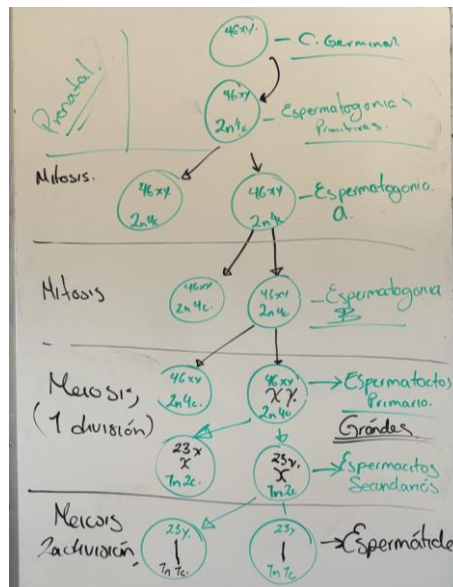 46xy.
C. Germinal.
Prenatal.
46xy
2n4c
Espermatogonias
Primitivas.
Mitosis.
46xy
2n4c
46xy
2n4c
Espermatogonia
a.
Mitosis
46xy
2n4c.
46xy
2n4c.
Espermatogonia
B
Meiosis,
(1 división)
46xy
2n4c.
46xy
X Y.
2n4c
Espermatoctos
Primario.
Grandes.
23x
X
1n2c.
23y.
X
1n2c
Espermacitos
Secundarios
Meiosis
2a división.
23y.
1n1c.
23y
1n1c.
Espermátide